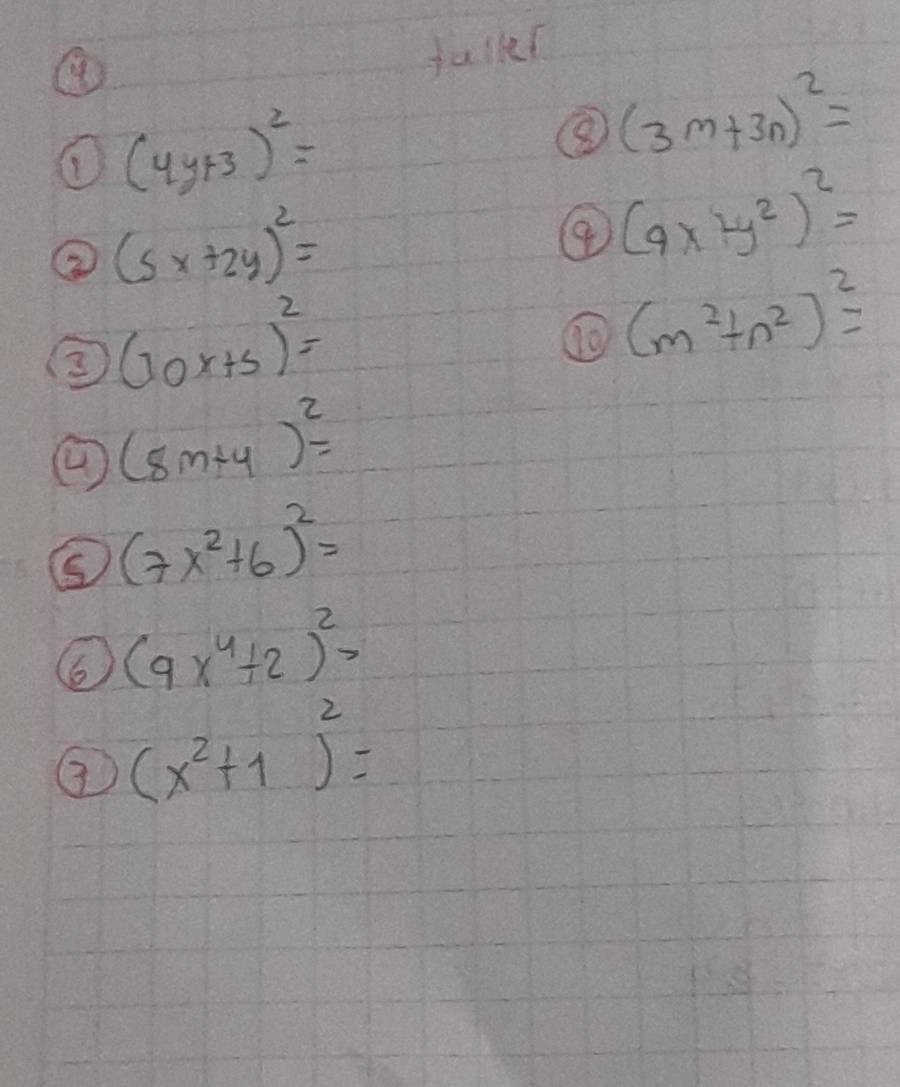 ④
taller
① (4y+3)² =
② (5x+2y)² =
③ (10x+5)² =
④ (8m+4)² =
⑤ (7x²+6)² =
⑥ (9x⁴+2)² =
⑦ (x²+1)² =
⑧ (3m+3n)² =
⑨ (9x+y²)² =
⑩ (m²+n²)² =